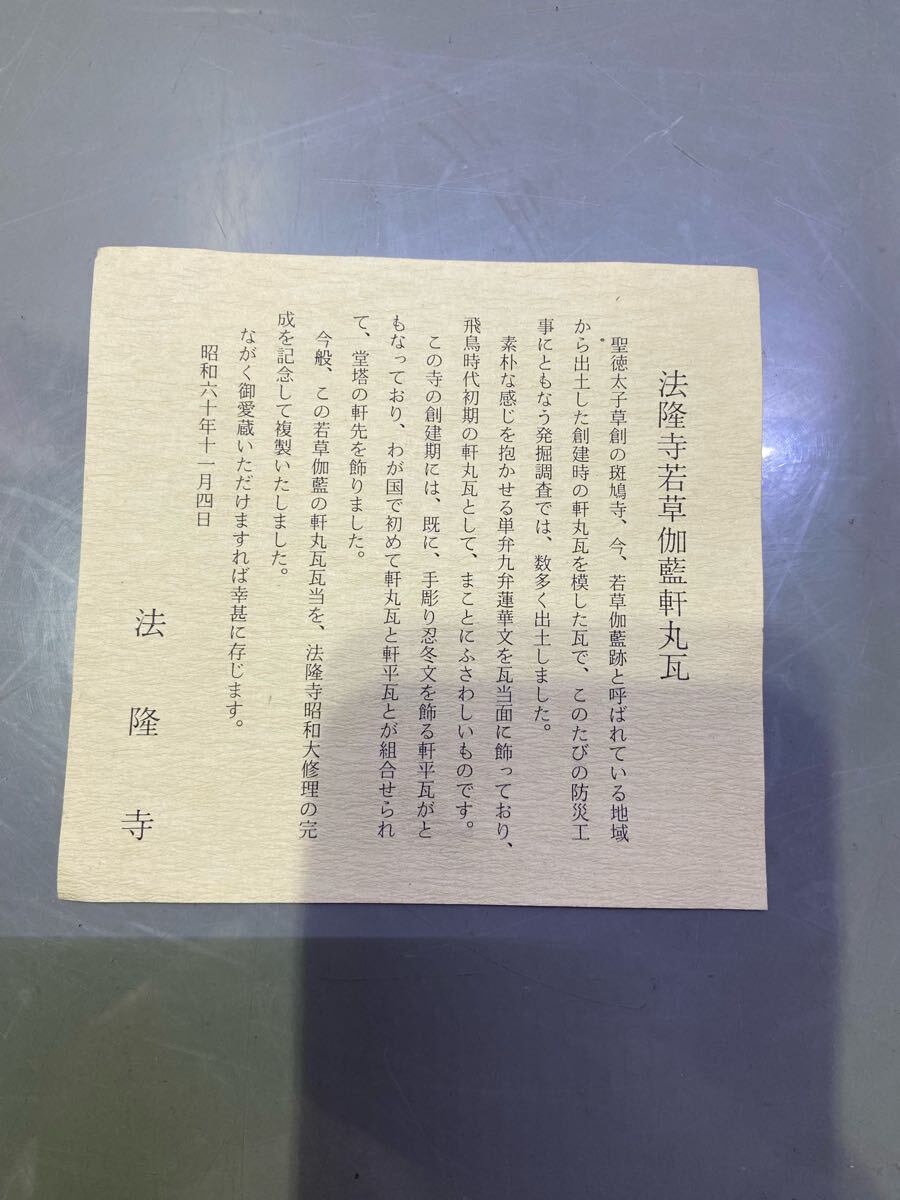 法隆寺若草伽藍軒丸瓦
聖徳太子草創の斑鳩寺、今、若草伽藍跡と呼ばれている地域
から出土した創建時の軒丸瓦を模した瓦で、このたびの防災工
事にともなう発掘調査では、数多く出土しました。
素朴な感じを抱かせる単弁九弁蓮華文を瓦当面に飾っており、
飛鳥時代初期の軒丸瓦として、まことにふさわしいものです。
この寺の創建期には、既に、手彫り忍冬文を飾る軒平瓦がと
もなっており、わが国で初めて軒丸瓦と軒平瓦とが組合せられ
て、堂塔の軒先を飾りました。
今般、この若草伽藍の軒丸瓦瓦当を、法隆寺昭和大修理の完
成を記念して複製いたしました。
ながく御愛蔵いただけますれば幸甚に存じます。
昭和六十年十一月四日
法隆寺